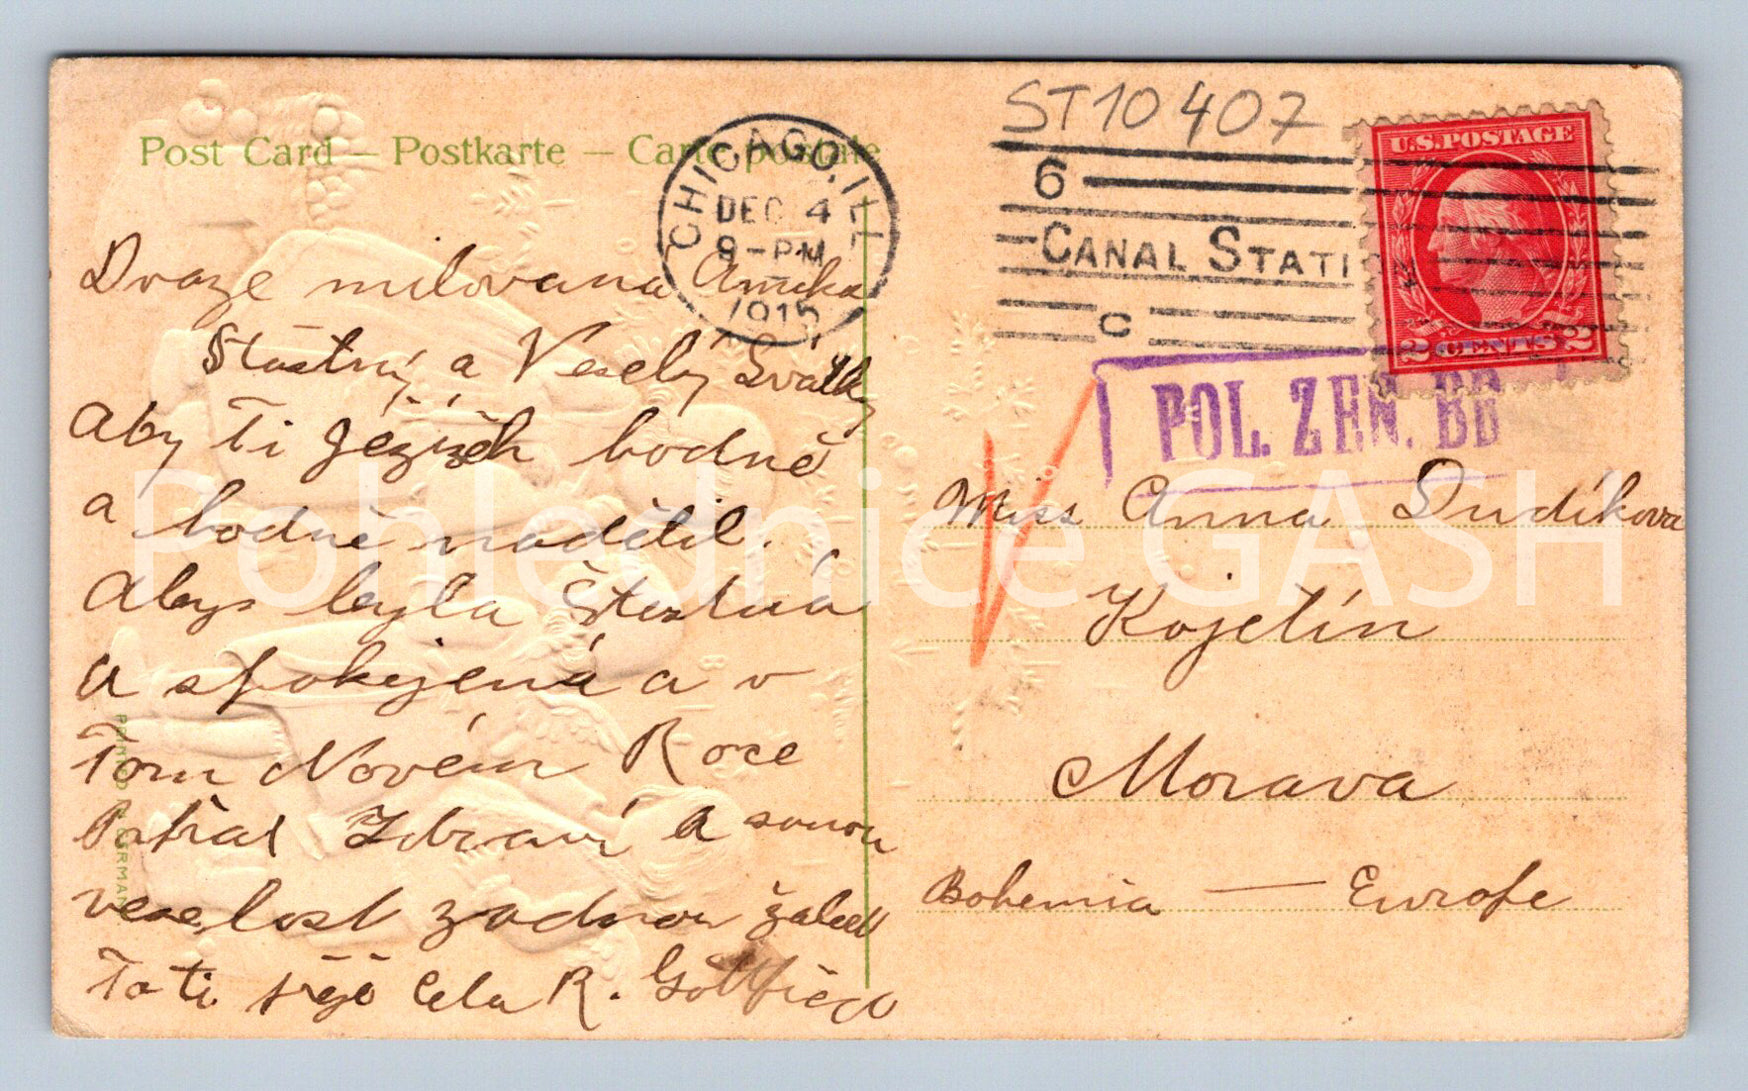 Post Card — Postkarte — Carte postale
ST10407
CHICAGO, ILL.
DEC 4
9-PM
1915
6
CANAL STATI
C
U.S. POSTAGE
2 CENTS 2
POL. ZEN. BB
Draze milovana Anička
Štastný a Veselý Svátky
Aby Ti Ježíšek hodně
a hodně nadělil.
Abys byla Štestná
a spokojená a v
Tom Novém Roce
Zdraví a samou
veselost žádnou žalost
To ti přeje Cela R.
Miss Anna Dudíkova
Kojetín
Morava
Bohemia — Europe
Pohlednice GASH